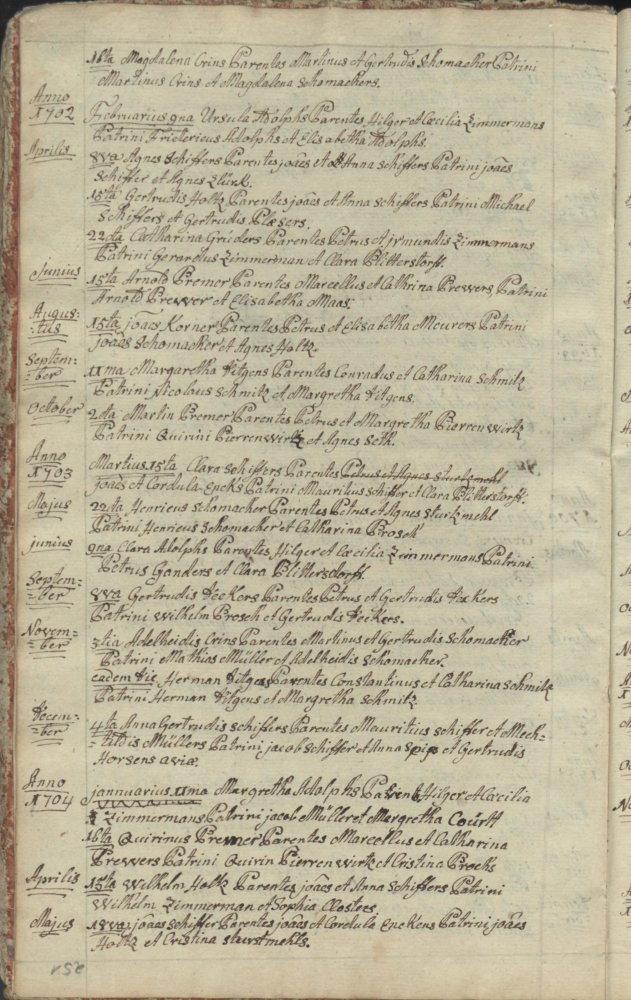 16ta Magdalena Crins Parentes Martinus et Gertrudis Schomaeker Patrini
Martinus Crins et Magdalena Schomaekers.
Anno
1702
Februarius 9na Ursula Adolphs Parentes Hilger et Cæcilia Zimmermans
Patrini Fridericus Adolphs et Elisabetha Adolphs
Aprilis
Agnes Schiffers Parentes joães et Anna Schiffers Patrini joães
Schiffer et Agnes
15ta Gertrudis Holtz Parentes joães et Anna Schiffers Patrini Michael
Schiffers et Gertrudis Plæsers.
22da Catharina Grüders Parentes Petrus et Zimmermans
Patrini Gerardus Zimmerman et Clara Plittersdorff.
Junius
15ta Arnold Premer Parentes Marcellus et Cathrina Prewers Patrini
Arnold Prewer et Elisabetha Maas.
Augus:
:tus
15ta joães Korner Parentes Petrus et Elisabetha Meurers Patrini
joães Schomaeker et Agnes Holtz.
Septem:
:ber
11ma Margaretha Titgens Parentes Conradus et Catharina Schmitz
Patrini Nicolaus Schmitz et Margretha Titgens.
October
2da Martin Premer Parentes Petrus et Margretha Pierrenwirtz
Patrini Quirini Pierrenwirtz et Agnes Seth.
Anno
1703
Martius 15ta Clara Schiffers Parentes Petrus et Agnes Sturtzmehl
joães et Cordula Encks Patrini Mauritius Schiffer et Clara Plittersdorff.
Majus
22ta Henricus Schomacher Parentes Petrus et Agnes Sturtzmehl
Patrini Henricus Schomacher et Catharina Prosch
junius
9na Clara Adolphs Parentes Hilger et Cæcilia Zimmermans Patrini
Petrus Ganders et Clara Plittersdorff.
Septem:
:ber
Gertrudis Deckers Parentes Petrus et Gertrudis Deckers
Patrini Wilhelm Prosch et Gertrudis Deckers.
Novem:
:ber
3tia Adelheidis Crins Parentes Martinus et Gertrudis Schomacher
Patrini Mathias Müller et Adelheidis Schomacher.
eadem die Herman Titgens Parentes Constantinus et Catharina Schmitz
Patrini Herman Titgens et Margretha Schmitz.
Decem:
:ber
4ta Anna Gertrudis Schiffers Parentes Mauritius Schiffer et Mech:
:tildis Müllers Patrini jacob Schiffer et Anna Spip et Gertrudis
Horsens avia.
Anno
1704
jannuarius 11ma Margretha Adolphs Parentes Hilger et Cæcilia
Zimmermans Patrini jacob Müller et Margretha Courth
16ta Quirinus Premer Parentes Marcellus et Catharina
Prewers Patrini Quirin Pierrenwirtz et Cristina Procks
Aprilis
15ta Wilhelm Holtz Parentes joães et Anna Schiffers Patrini
Wilhelm Zimmerman et Sophia Closters.
Majus
18va joães Schiffer Parentes joães et Cordula Enckens Patrini joães
Holtz et Cristina Sturtzmehls.